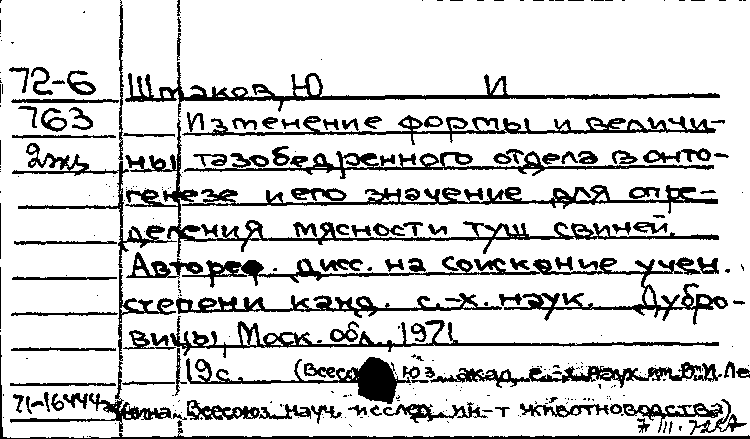 72-6 Штаков, Ю И
763 Изменение формы и величи-
2экз ны тазобедренного отдела в онто-
генезе и его значение для опре-
деления мясности туш свиней.
Автореф. дисс. на соискание учен.
степени канд. с.-х. наук. Дубро-
вицы, Моск. обл., 1971
19с. (Всесоюз. акад. с.-х. наук им. В.И. Ле
71-16444 нина. Всесоюз. науч. исслед. ин-т животноводства)